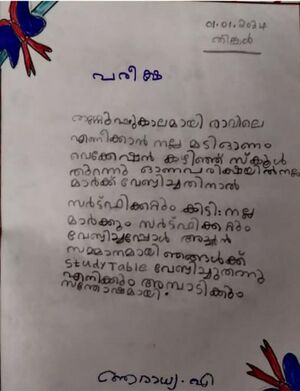 01.01.2024
തിങ്കൾ
പരീക്ഷ
തണുപ്പുകാലമായി രാവിലെ
എണീക്കാൻ നല്ല മടി ഓണം
വെക്കേഷൻ കഴിഞ്ഞ് സ്കൂൾ
തുറന്നു ഓണപരീക്ഷയിൽ നല്ല
മാർക്ക് വേണ്ടിച്ചതിനാൽ
സർട്ഫിക്കറ്റും കിട്ടി: നല്ല
മാർക്കും സർട്ഫിക്കറ്റും
വേണ്ടിച്ചപ്പോൾ അച്ഛൻ
സമ്മാനമായി ഞങ്ങൾക്ക്
Study Table വേണ്ടിച്ചുതന്നു
എനിക്കും അമ്പാടിക്കും
സന്തോഷമായി.
ആരാധ്യ. എ